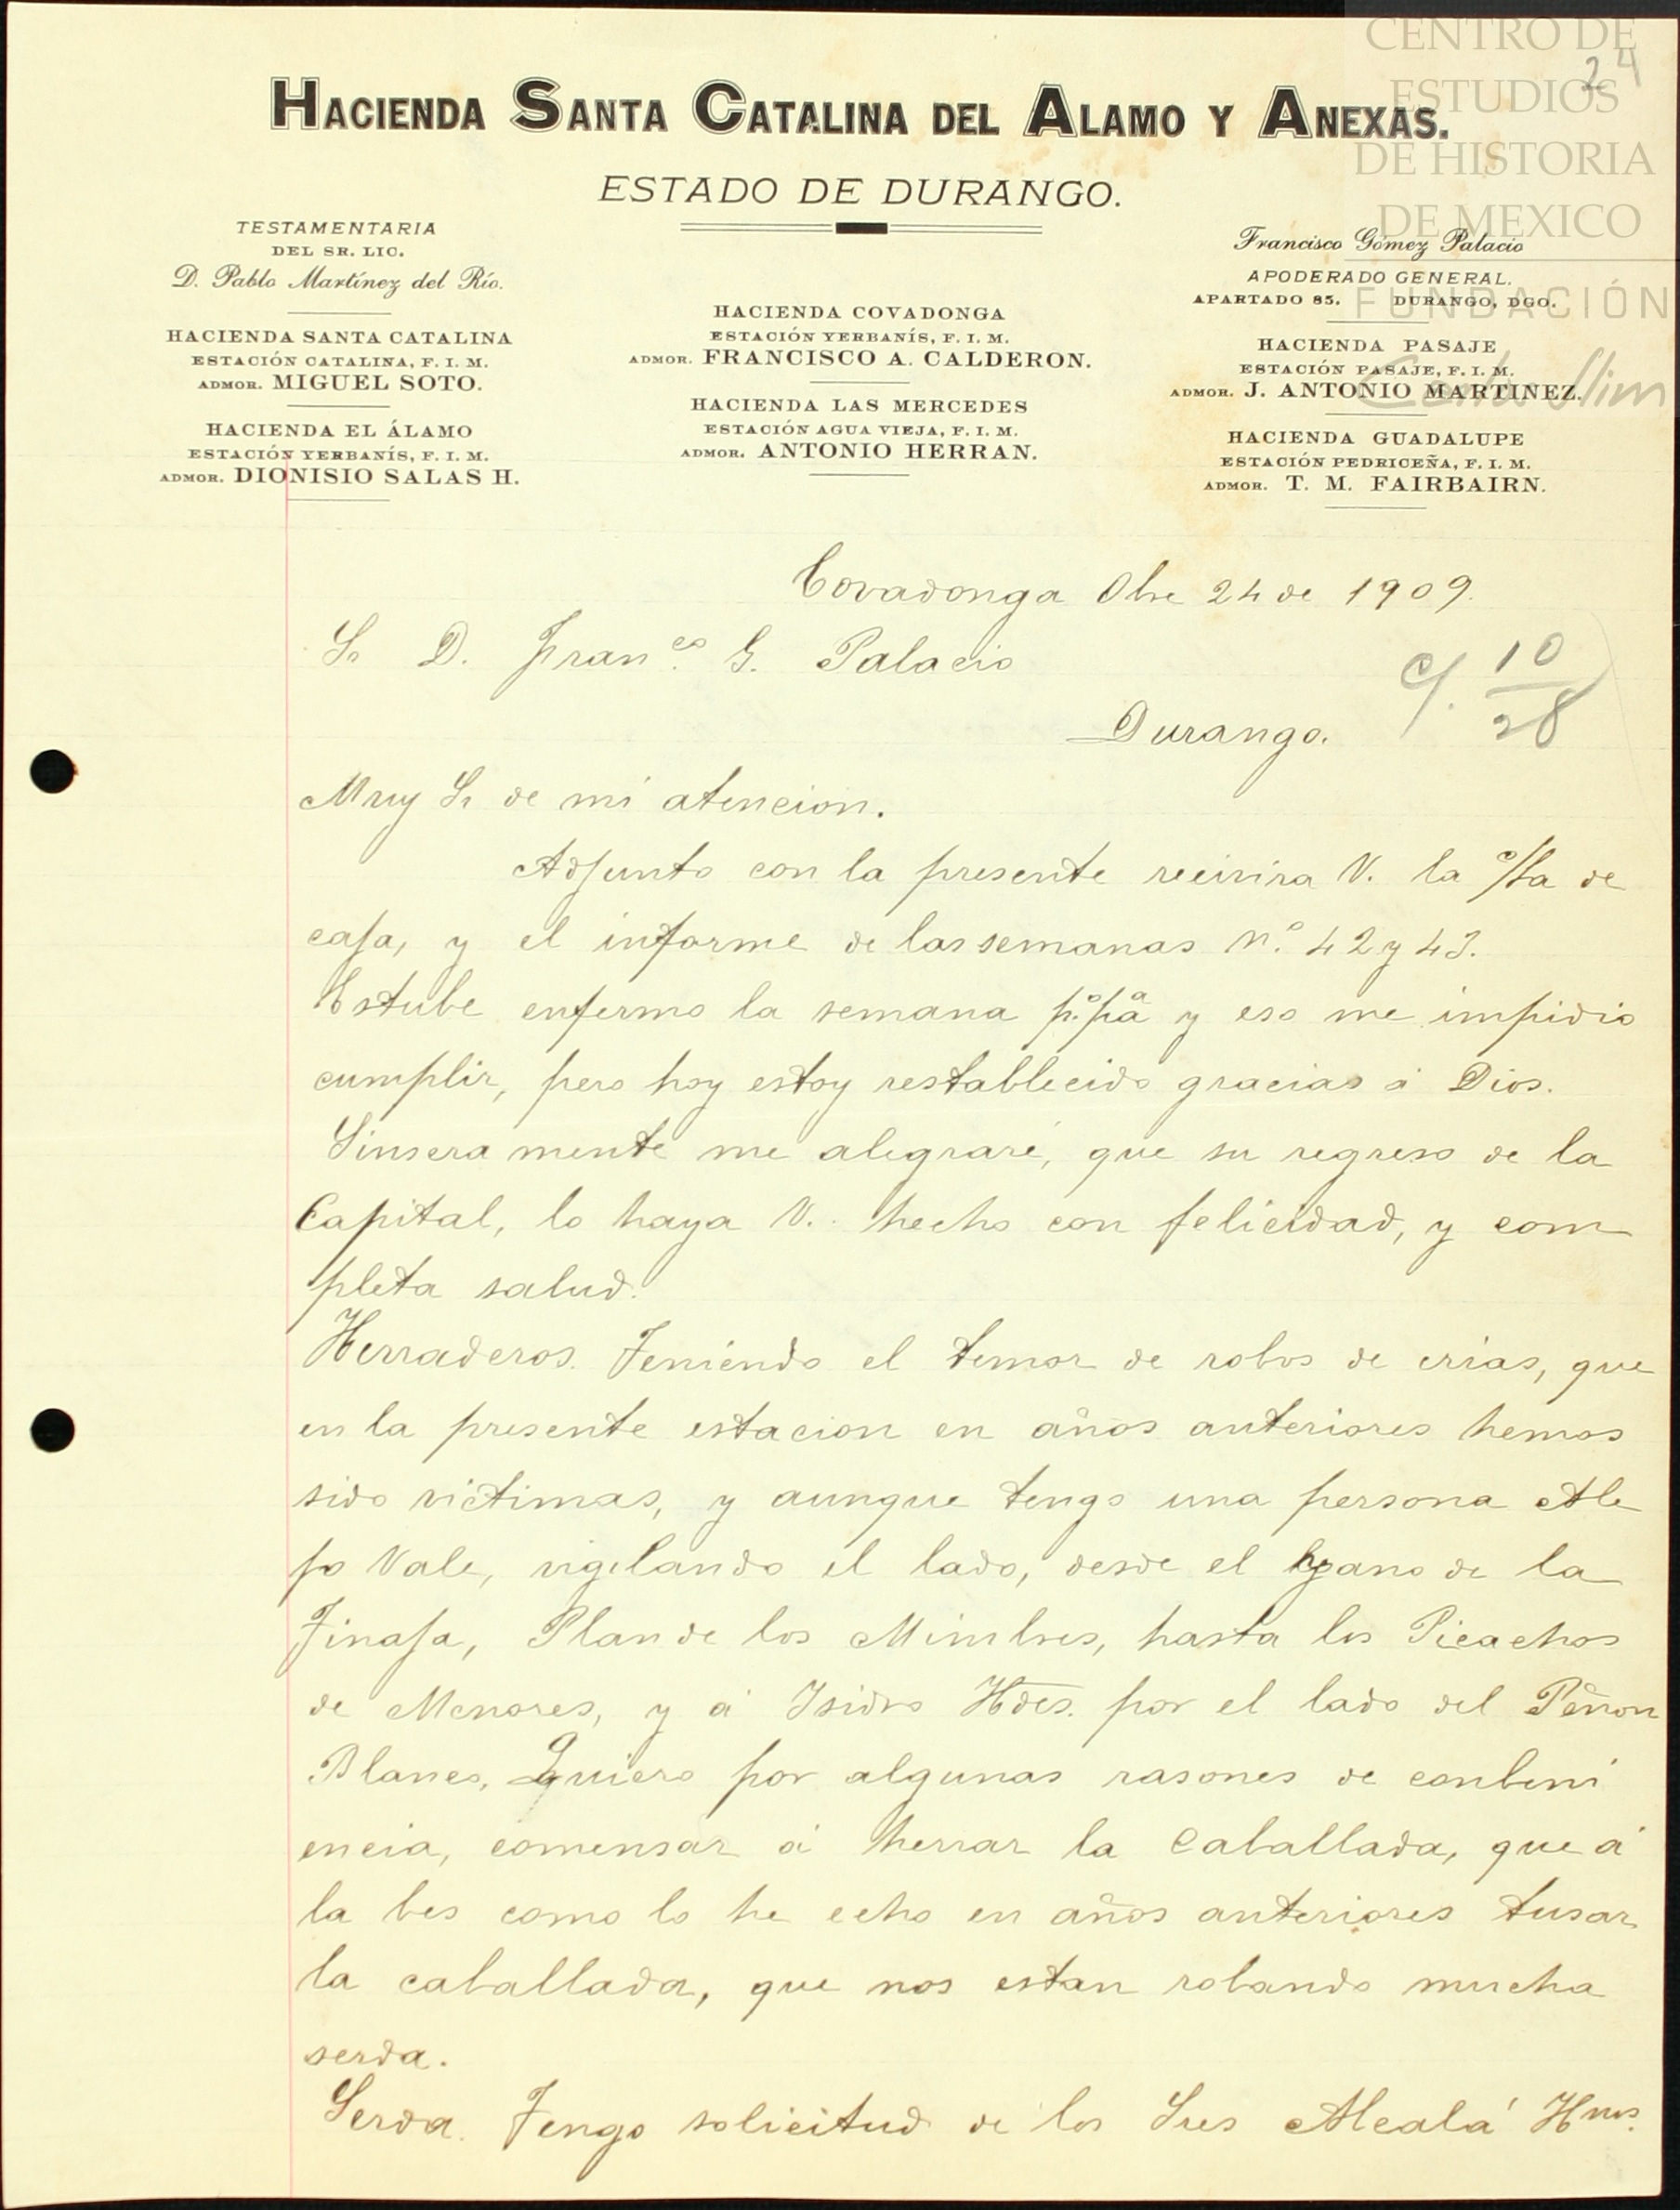 CENTRO DE
ESTUDIOS
DE HISTORIA
DE MEXICO
FUNDACIÓN
Carlos Slim
24
HACIENDA SANTA CATALINA DEL ALAMO Y ANEXAS.
ESTADO DE DURANGO.
TESTAMENTARIA
DEL SR. LIC.
D. Pablo Martínez del Río.
HACIENDA SANTA CATALINA
ESTACIÓN CATALINA, F. I. M.
ADMOR. MIGUEL SOTO.
HACIENDA EL ÁLAMO
ESTACIÓN YERBANÍS, F. I. M.
ADMOR. DIONISIO SALAS H.
HACIENDA COVADONGA
ESTACIÓN YERBANÍS, F. I. M.
ADMOR. FRANCISCO A. CALDERON.
HACIENDA LAS MERCEDES
ESTACIÓN AGUA VIEJA, F. I. M.
ADMOR. ANTONIO HERRAN.
Francisco Gómez Palacio
APODERADO GENERAL.
APARTADO 85. DURANGO, DGO.
HACIENDA PASAJE
ESTACIÓN PASAJE, F. I. M.
ADMOR. J. ANTONIO MARTINEZ.
HACIENDA GUADALUPE
ESTACIÓN PEDRICEÑA, F. I. M.
ADMOR. T. M. FAIRBAIRN.
Covadonga Obre 24 de 1909.
Sr D. Franco. G. Palacio
c/. 10/28
Durango.
Muy Sr de mi atencion.
Adjunto con la presente recivira V. la c/ta de
caja, y el informe de las semanas No. 42 y 43.
Estube enfermo la semana p.o pa y eso me impidio
cumplir, pero hoy estoy restablecido gracias á Dios.
Sinsera mente me alegraré, que su regreso de la
Capital, lo haya V. hecho con felicidad, y com
pleta salud.
Herraderos. Teniendo el temor de robos de crias, que
en la presente estacion en años anteriores hemos
sido victimas, y aunque tengo una persona Ale
jo Vale, vigilando el lado, desde el de la
Tinaja, Plan de los Mimbres, hasta los Picachos
de Menores, y á Isidro Hdes. por el lado del Peñon
Blanco, Quiero por algunas rasones de conbeni
encia, comensar á herrar la Caballada, que á
la bes como lo he echo en años anteriores tusar
la caballada, que nos estan robando mucha
serda.
Serda. Tengo solicitud de los Sres Alcalá Hnos.